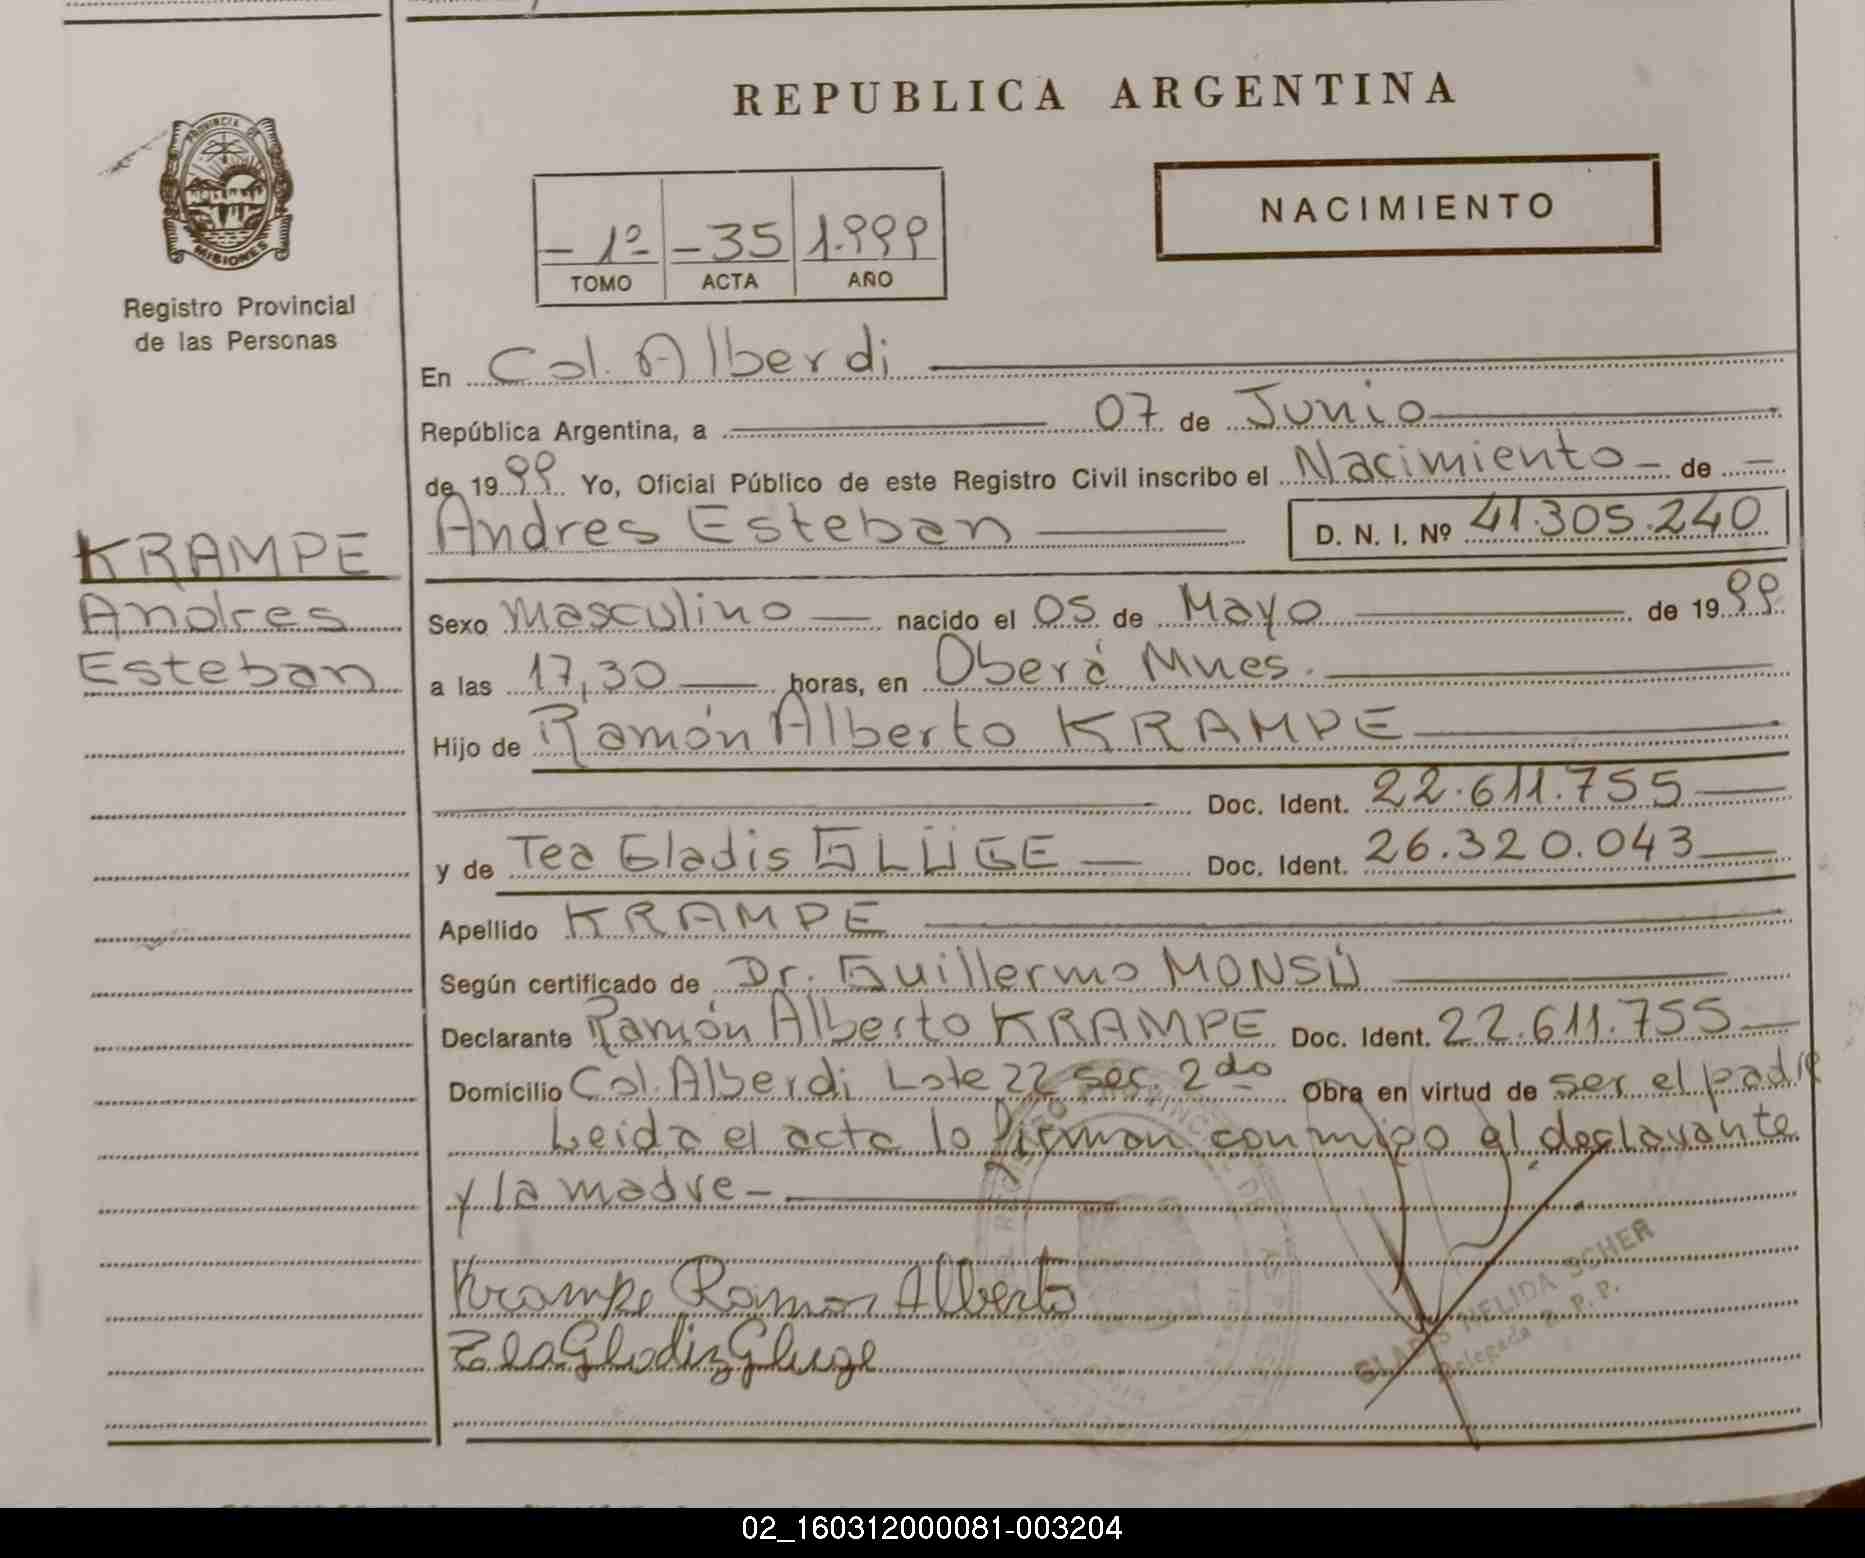 REPUBLICA ARGENTINA
PROVINCIA DE
MISIONES
Registro Provincial
de las Personas
- 1º - 35 1.999
TOMO ACTA AÑO
NACIMIENTO
En Col. Alberdi
República Argentina, a 07 de Junio
de 1999 Yo, Oficial Público de este Registro Civil inscribo el Nacimiento - de -
KRAMPE
Andres
Esteban
Andres Esteban D. N. I. Nº 41.305.240
Sexo Masculino nacido el 05 de Mayo de 1999
a las 17,30 horas, en Oberá Mnes.
Hijo de Ramón Alberto KRAMPE
Doc. Ident. 22.611.755
y de Tea Gladis GLÜGE Doc. Ident. 26.320.043
Apellido KRAMPE
Según certificado de Dr. Guillermo MONSÚ
Declarante Ramón Alberto KRAMPE Doc. Ident. 22.611.755
Domicilio Col. Alberdi Lote 22 sec. 2do Obra en virtud de ser el padre
Leida el acta lo firman conmigo el declarante
y la madre -
Krampe Ramon Alberto
Gluge
GLADIS NELIDA SCHER
Delegada R. P. P.
02_160312000081-003204